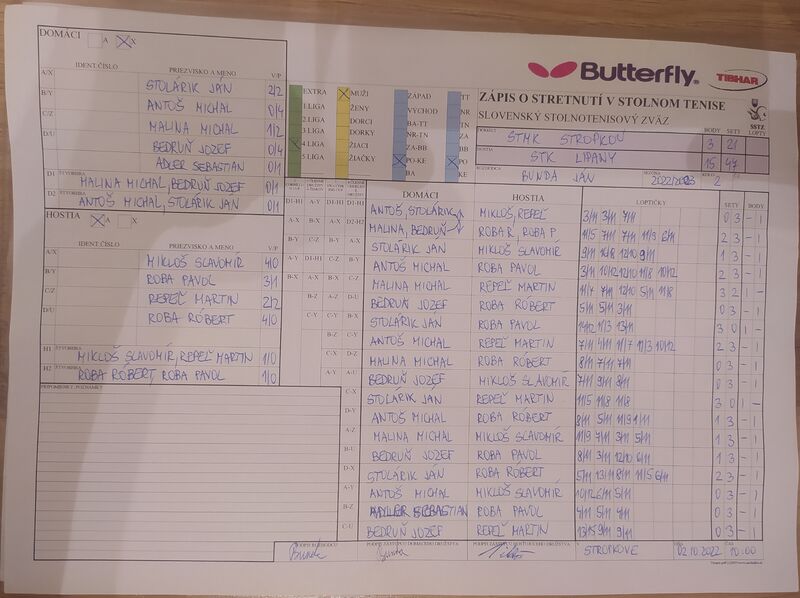 DOMÁCI A X
IDENT.ČÍSLO PRIEZVISKO A MENO V/P
A/X STOLÁRIK JÁN 2/2
B/Y ANTOŠ MICHAL 0/4
C/Z MALINA MICHAL 1/2
D/U BEDRUŇ JOZEF 0/4
ADLER SEBASTIAN 0/1
D1 ŠTVORHRA MALINA MICHAL, BEDRUŇ JOZEF 0/1
D2 ANTOŠ MICHAL, STOLÁRIK JÁN 0/1
HOSTIA A X
IDENT.ČÍSLO PRIEZVISKO A MENO V/P
A/X MIKLOŠ SLAVOMÍR 4/0
B/Y ROBA PAVOL 3/1
C/Z REPEĽ MARTIN 2/2
D/U ROBA RÓBERT 4/0
H1 ŠTVORHRA MIKLOŠ SLAVOMÍR, REPEĽ MARTIN 1/0
H2 ŠTVORHRA ROBA RÓBERT, ROBA PAVOL 1/0
PRIPOMIENKY / POZNÁMKY
EXTRA MUŽI ZÁPAD TT
1.LIGA ŽENY VÝCHOD NR
2.LIGA DORCI BA-TT TN
3.LIGA DORKY NR-TN ZA
4 LIGA ŽIACI ZA-BB BB
5 LIGA ŽIAČKY PO-KE PO
BA KE
Butterfly TIBHAR
ZÁPIS O STRETNUTÍ V STOLNOM TENISE
SLOVENSKÝ STOLNOTENISOVÝ ZVÄZ
SSTZ
BODY SETY LOPTY
DOMÁCI ŠTMK STROPKOV 3 21
HOSTIA STK LIPANY 15 47
ROZHODCA BUNDA JÁN SEZÓNA 2022/2023 KOLO 2
DOMÁCI HOSTIA LOPTIČKY SETY BODY
ANTOŠ, STOLÁRIK MIKLOŠ, REPEĽ 3/11 3/11 7/11 0 3 - 1
MALINA, BEDRUŇ ROBA R, ROBA P. 11/5 7/11 7/11 11/9 6/11 2 3 - 1
STOLÁRIK JÁN MIKLOŠ SLAVOMÍR 1 3 - 1
ANTOŠ MICHAL ROBA PAVOL 3/11 10/12 12/10 11/8 10/12 2 3 - 1
MALINA MICHAL REPEĽ MARTIN 11/7 7/11 12/10 5/11 11/8 3 2 1 -
BEDRUŇ JOZEF ROBA RÓBERT 5/11 5/11 3/11 0 3 - 1
STOLÁRIK JÁN ROBA PAVOL 14/12 11/3 13/11 3 0 1 -
ANTOŠ MICHAL REPEĽ MARTIN 7/11 4/11 11/7 11/3 10/12 2 3 - 1
MALINA MICHAL ROBA RÓBERT 8/11 7/11 7/11 0 3 - 1
BEDRUŇ JOZEF MIKLOŠ SLAVOMÍR 7/11 9/11 8/11 0 3 - 1
STOLÁRIK JÁN REPEĽ MARTIN 11/5 11/8 11/8 3 0 1 -
ANTOŠ MICHAL ROBA RÓBERT 8/11 5/11 11/9 1/11 1 3 - 1
MALINA MICHAL MIKLOŠ SLAVOMÍR 11/9 7/11 3/11 5/11 1 3 - 1
BEDRUŇ JOZEF ROBA PAVOL 8/11 3/11 12/10 6/11 1 3 - 1
STOLÁRIK JÁN ROBA RÓBERT 5/11 13/11 8/11 11/5 6/11 2 3 - 1
ANTOŠ MICHAL MIKLOŠ SLAVOMÍR 10/12 6/11 5/11 0 3 - 1
ADLER SEBASTIAN ROBA PAVOL 4/11 5/11 4/11 0 3 - 1
BEDRUŇ JOZEF REPEĽ MARTIN 13/15 9/11 9/11 0 3 - 1
PODPIS ROZHODCU Bunda
PODPIS ZÁSTUPCU DOMÁCEHO DRUŽSTVA
PODPIS ZÁSTUPCU HOSŤUJÚCEHO DRUŽSTVA
V STROPKOVE DŇA 02.10.2022 ČAS 10.00